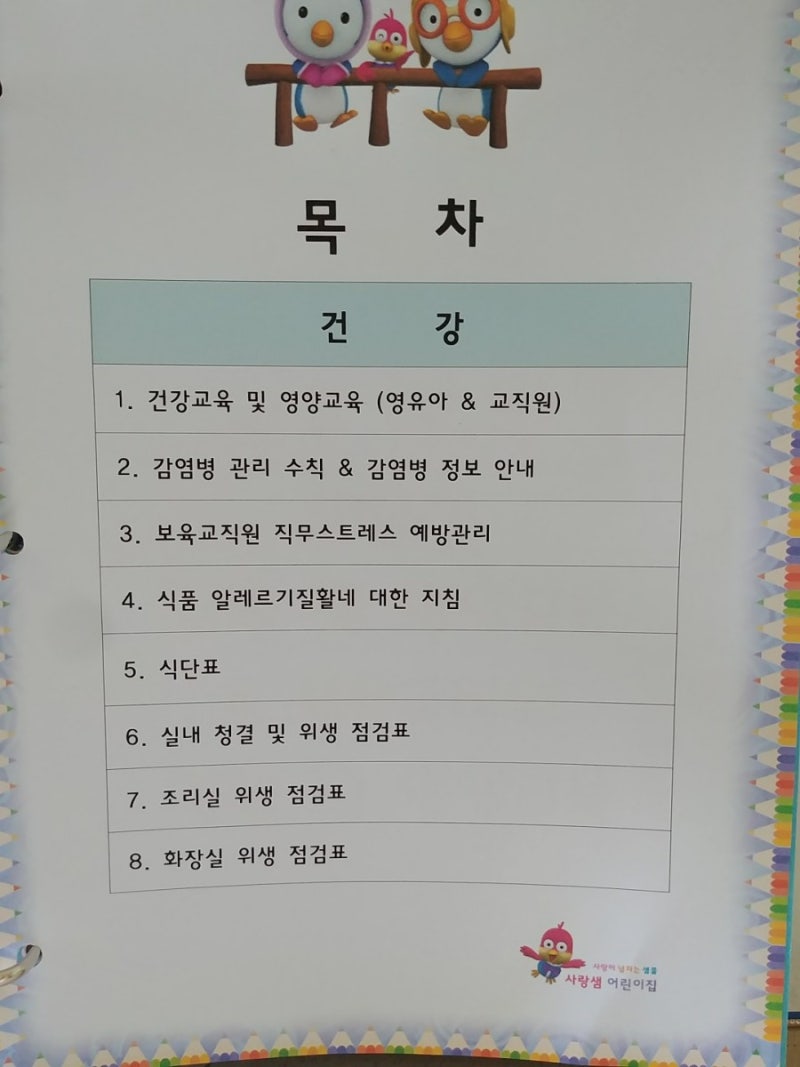 목 차
건 강
1. 건강교육 및 영양교육 (영유아 & 교직원)
2. 감염병 관리 수칙 & 감염병 정보 안내
3. 보육교직원 직무스트레스 예방관리
4. 식품 알레르기질활네 대한 지침
5. 식단표
6. 실내 청결 및 위생 점검표
7. 조리실 위생 점검표
8. 화장실 위생 점검표
사랑이 넘치는 샘물
사랑샘 어린이집